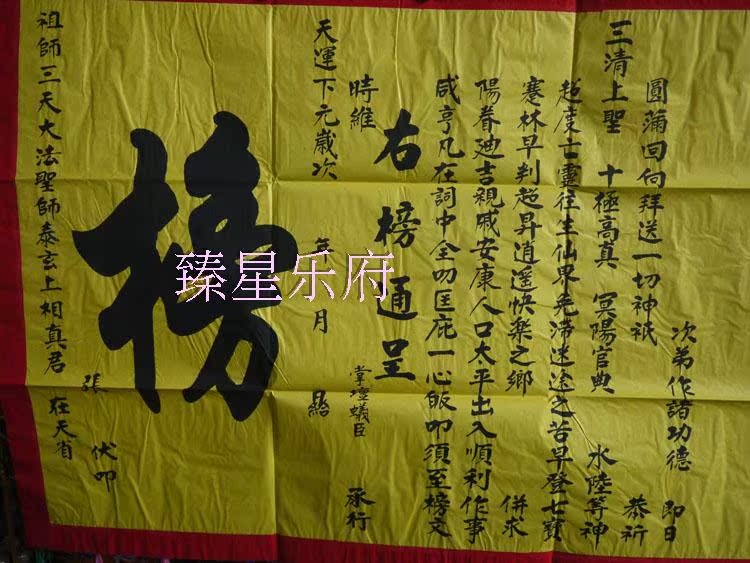 次第作諸功德 即日
圓滿回向拜送一切神祇 恭祈
三清上聖 十極高真 冥陽官典 水陸等神
超度亡靈往生仙界免滯迷途之苦早登七寶
騫林早判超昇逍遥快樂之鄉 併求
陽眷迪吉親戚安康人口太平出入順利作事
咸亨凡在詞中全叨匡庇一心皈叩須至榜文
右榜通呈
時維 掌壇蟻臣 承行
天運下元歲次 年 月 日給
榜
張 伏叩
祖師三天大法聖師泰玄上相真君 在天省
臻星乐府